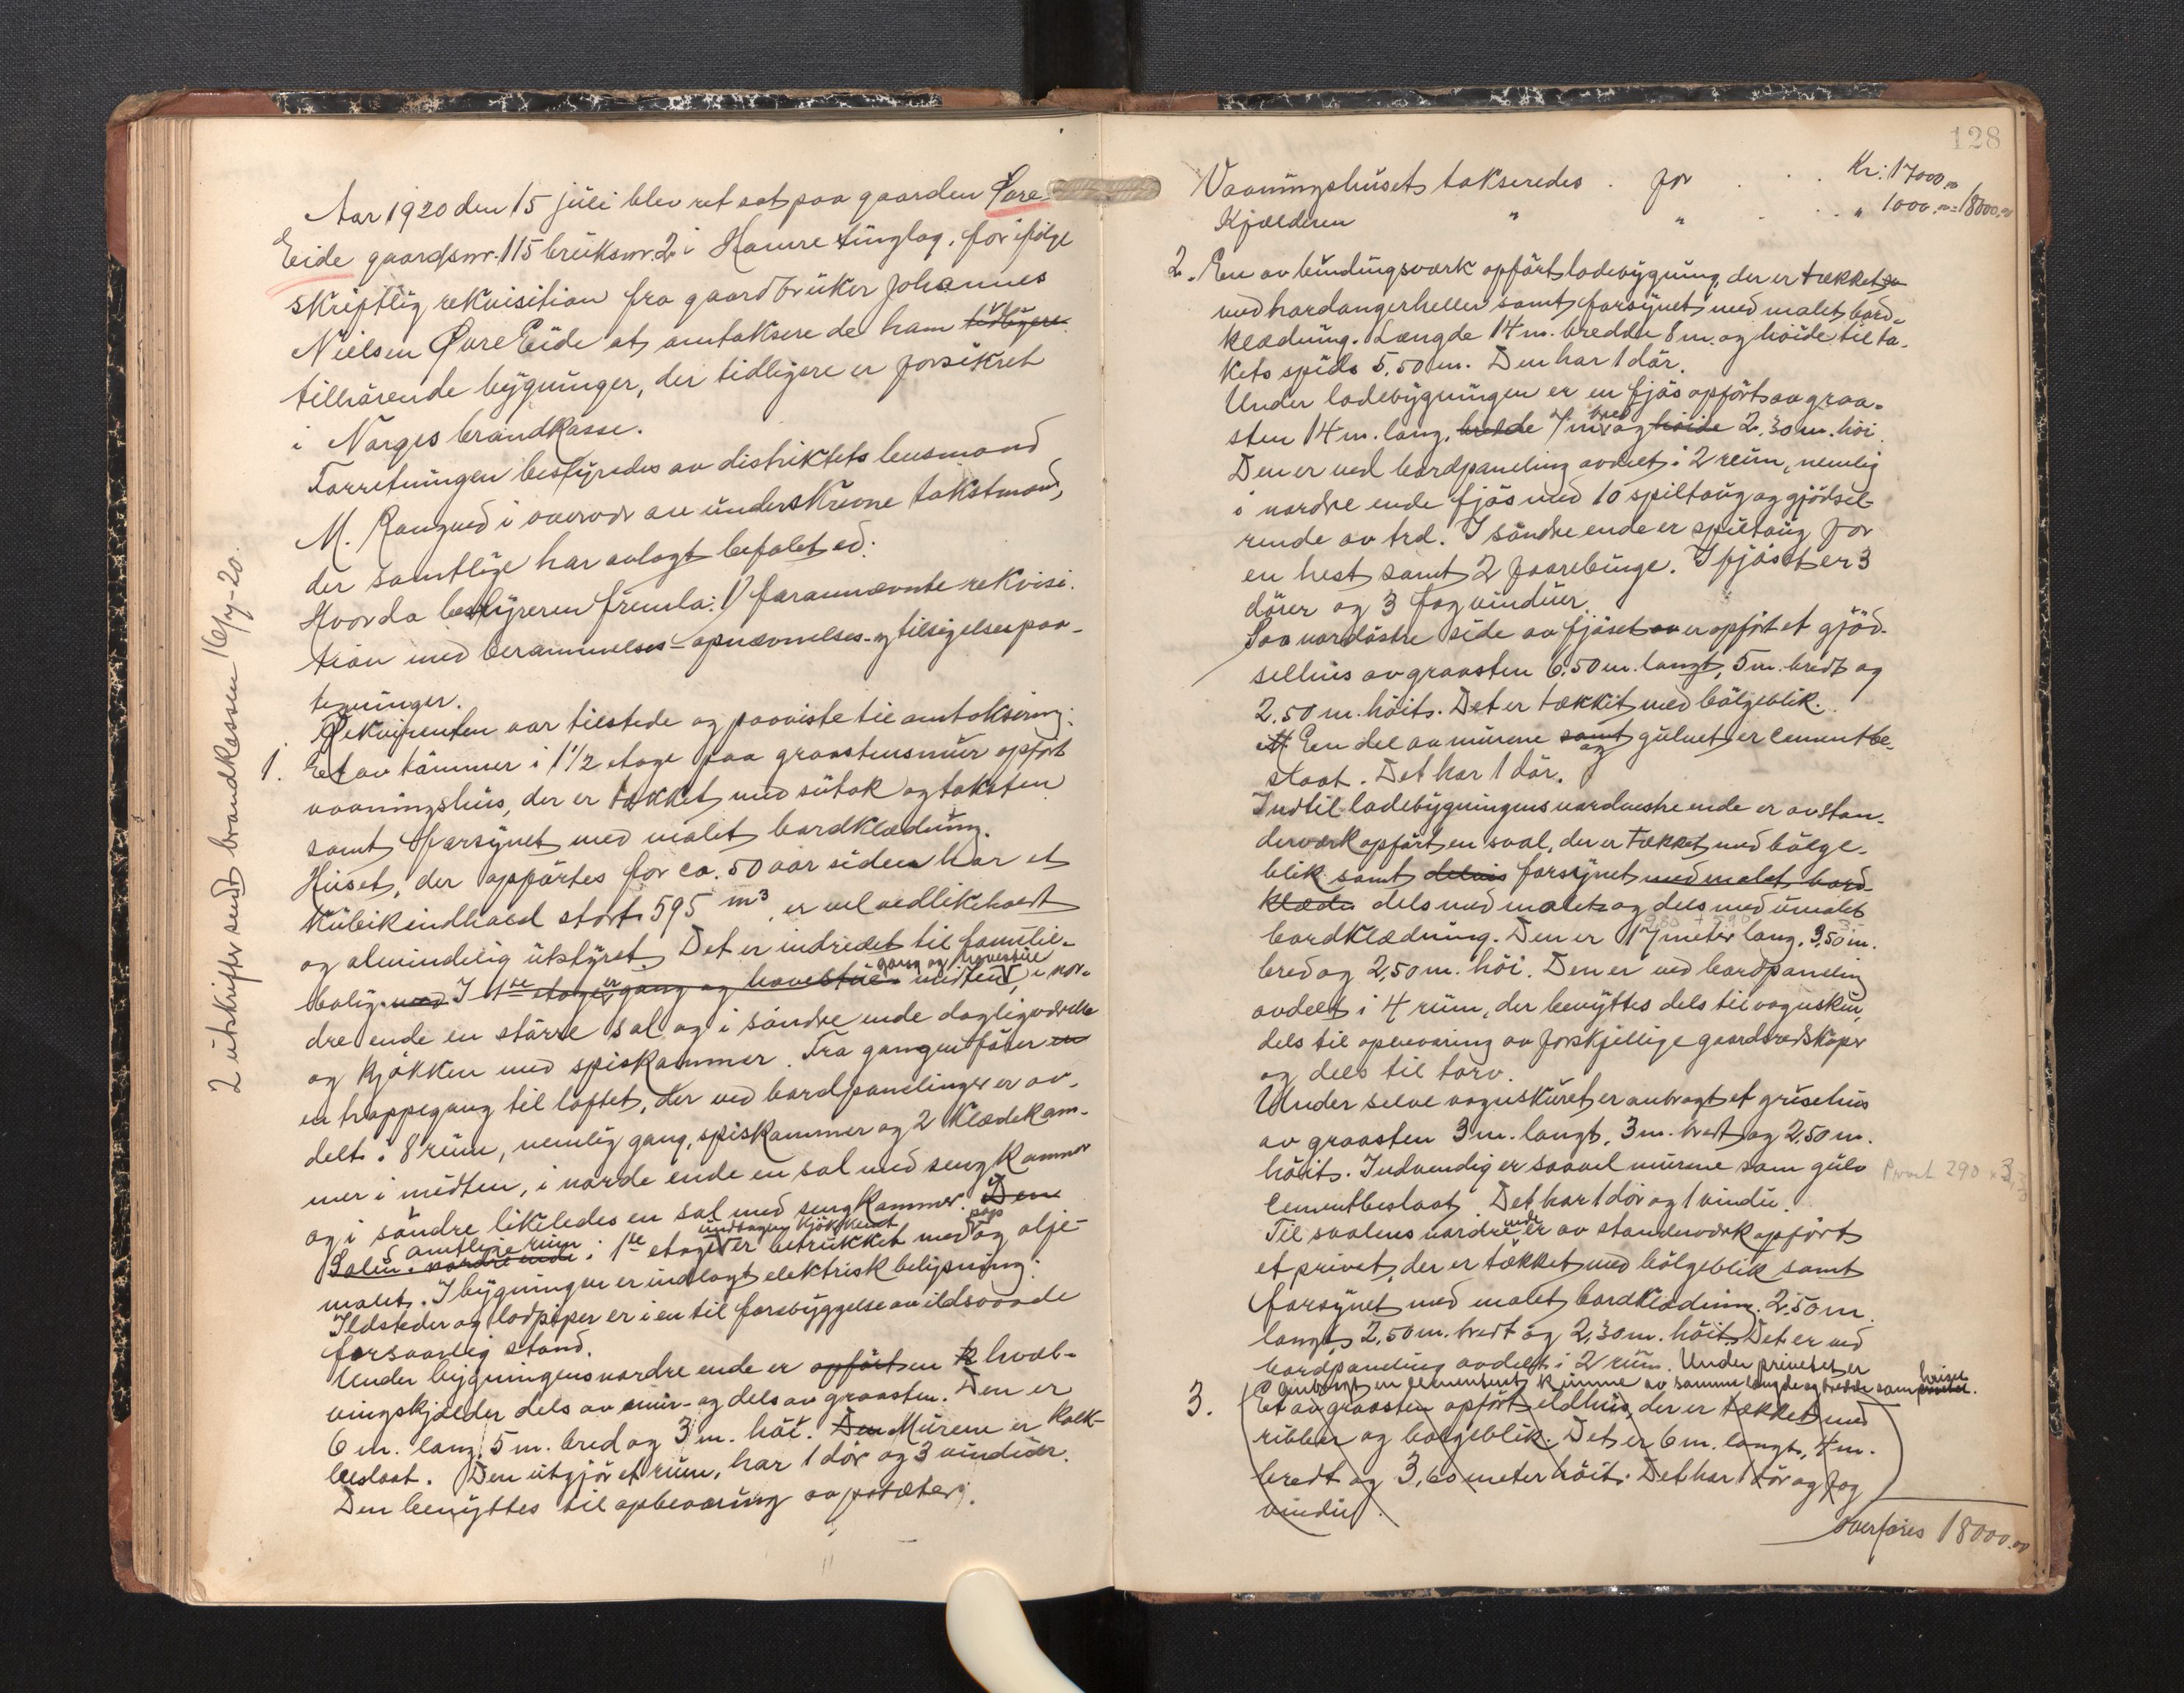 2 utskrifter sendt brandkassen 16/7-20.
Aar 1920 den 15 juli blev ret sat paa gaarden Øvre-
Eide gaardsnr. 115 bruksnr. 2 i Hamre tinglag, for ifølge
skriftlig rekvisition fra gaardbruker Johannes
Nielsen Øvre Eide at omtaksere de ham tidligere
tilhörende bygninger, der tidligere er forsikret
i Norges brandkasse.
Forretningen bestyredes av distriktets lensmand
M. Rongved i overvær av underskrevne takstmænd,
der samtlige har avlagt befalet ed.
Hvorda bestyreren fremla: 1) forannævnte rekvisi-
tion med berammelses- opnævnelses- og tilsigelsespaa-
tegninger.
Rekvirenten var tilstede og paaviste til omtaksering:
1. Et av tömmer i 1 1/2 etage paa graastensmur opført
vaaningshus, der er tækket med sutak og taksten
samt forsynet med malet bordklædning.
Huset, der opførtes for ca. 50 aar siden har et
kubikindhold stort 595 m3, er vel vedlikeholdt
og almindelig utstyret. Det er indredet til familie-
gang og kovestue
bolig. med I 1ste etage er gang og kovestue i midten, i nor-
dre ende en större sal og i söndre ende dagligværelse
og kjökken med spiskammer. Fra gangen förer en
en trappegang til loftet, der ved bordpanelinger er av-
delt i 8 rum, nemlig gang, spiskammer og 2 klædekam-
mer i midten, i nordre ende en sal med sengkammer
og i söndre likeledes en sal med sengkammer. Den
samtlige rum undtagen kjökkenet pap
Salen i nordre ende i 1ste etage er betrukket med og olje-
malet. I bygningen er indlagt elektrisk belysning.
Ildsteder og lodpiper er i en til forebyggelse av ildsvaade
forsvarlig stand.
Under bygningens nordre ende er opført en k hvæl-
vingskjælder dels av mur- og dels av graasten. Den er
6 m. lang, 5 m. bred og 3 m. höi. Den Murene er kalk-
beslaat. Den utgjör et rum, har 1 dör og 3 vinduer.
Den benyttes til opbevaring av poteter.
128
Vaaningshuset takseredes . for . . . Kr. 17000.00
Kjælderen " " . . . " 1000.00 = 18000.00
2. En av bindingsverk opfört ladebygning, der er tækket
med hardangerheller samt forsynet med malet bord-
klædning. Længde 14 m. bredde 8 m. og höide til ta-
kets spids 5,50 m. Den har 1 dör.
Under ladebygningen er en fjös opfört av graa-
bred
sten 14 m. lang, bredde 7 m og höide 2,30 m. höi.
Den er ved bordpaneling avdelt i 2 rum, nemlig
i nordre ende fjös med 10 spiltaug og gjödsel-
rende av træ. I söndre ende er spiltaug for
en hest samt 2 faarebinge. I fjöset er 3
dörer og 3 fag vinduer.
Paa nordöstre side av fjöset er opfört et gjöd-
selhus av graasten 6,50 m. langt, 5 m. bredt og
2,50 m. höit. Det er tækket med bölgeblik.
En del av murene samt og gulvet er cementbe-
slaat. Det har 1 dör.
Indtil ladebygningens nordvestre ende er av stan-
derverk opfört en sval, der er tækket med bölge-
blik samt delvis forsynet med malet bord-
klædn dels med malet og dels med umalet
bordklædning. Den er 17 meter lang, 3,50 m.
bred og 2,50 m. höi. Den er ved bordpaneling
avdelt i 4 rum, der benyttes dels til vognskur,
dels til opbevaring av forskjellige gaardsredskaper
og dels til torv.
Under selve vognskuret er anbragt et grisehus
av graasten 3 m. langt, 3 m. bredt og 2,50 m.
höit. Indvendig er saavel murene som gulv
cementbeslaat. Det har 1 dör og 1 vindu.
ende
Til svalens nordre er av standerverk opfört
et privet, der er tækket med bölgeblik samt
forsynet med malet bordklædning. 2,50 m.
langt, 2,50 m. bredt og 2,30 m. höit. Det er ved
bordpaneling avdelt i 2 rum. Under privetet er
anbragt en cementeret kumme av samme længde og bredde som huset.
3. Et av graasten opfört eldhus, der er tækket med
ribber og bølgeblik. Det er 6 m. langt, 4 m.
bredt og 3,60 meter höit. Det har 1 dör og 1 fag
vindu.
overføres 18000.00